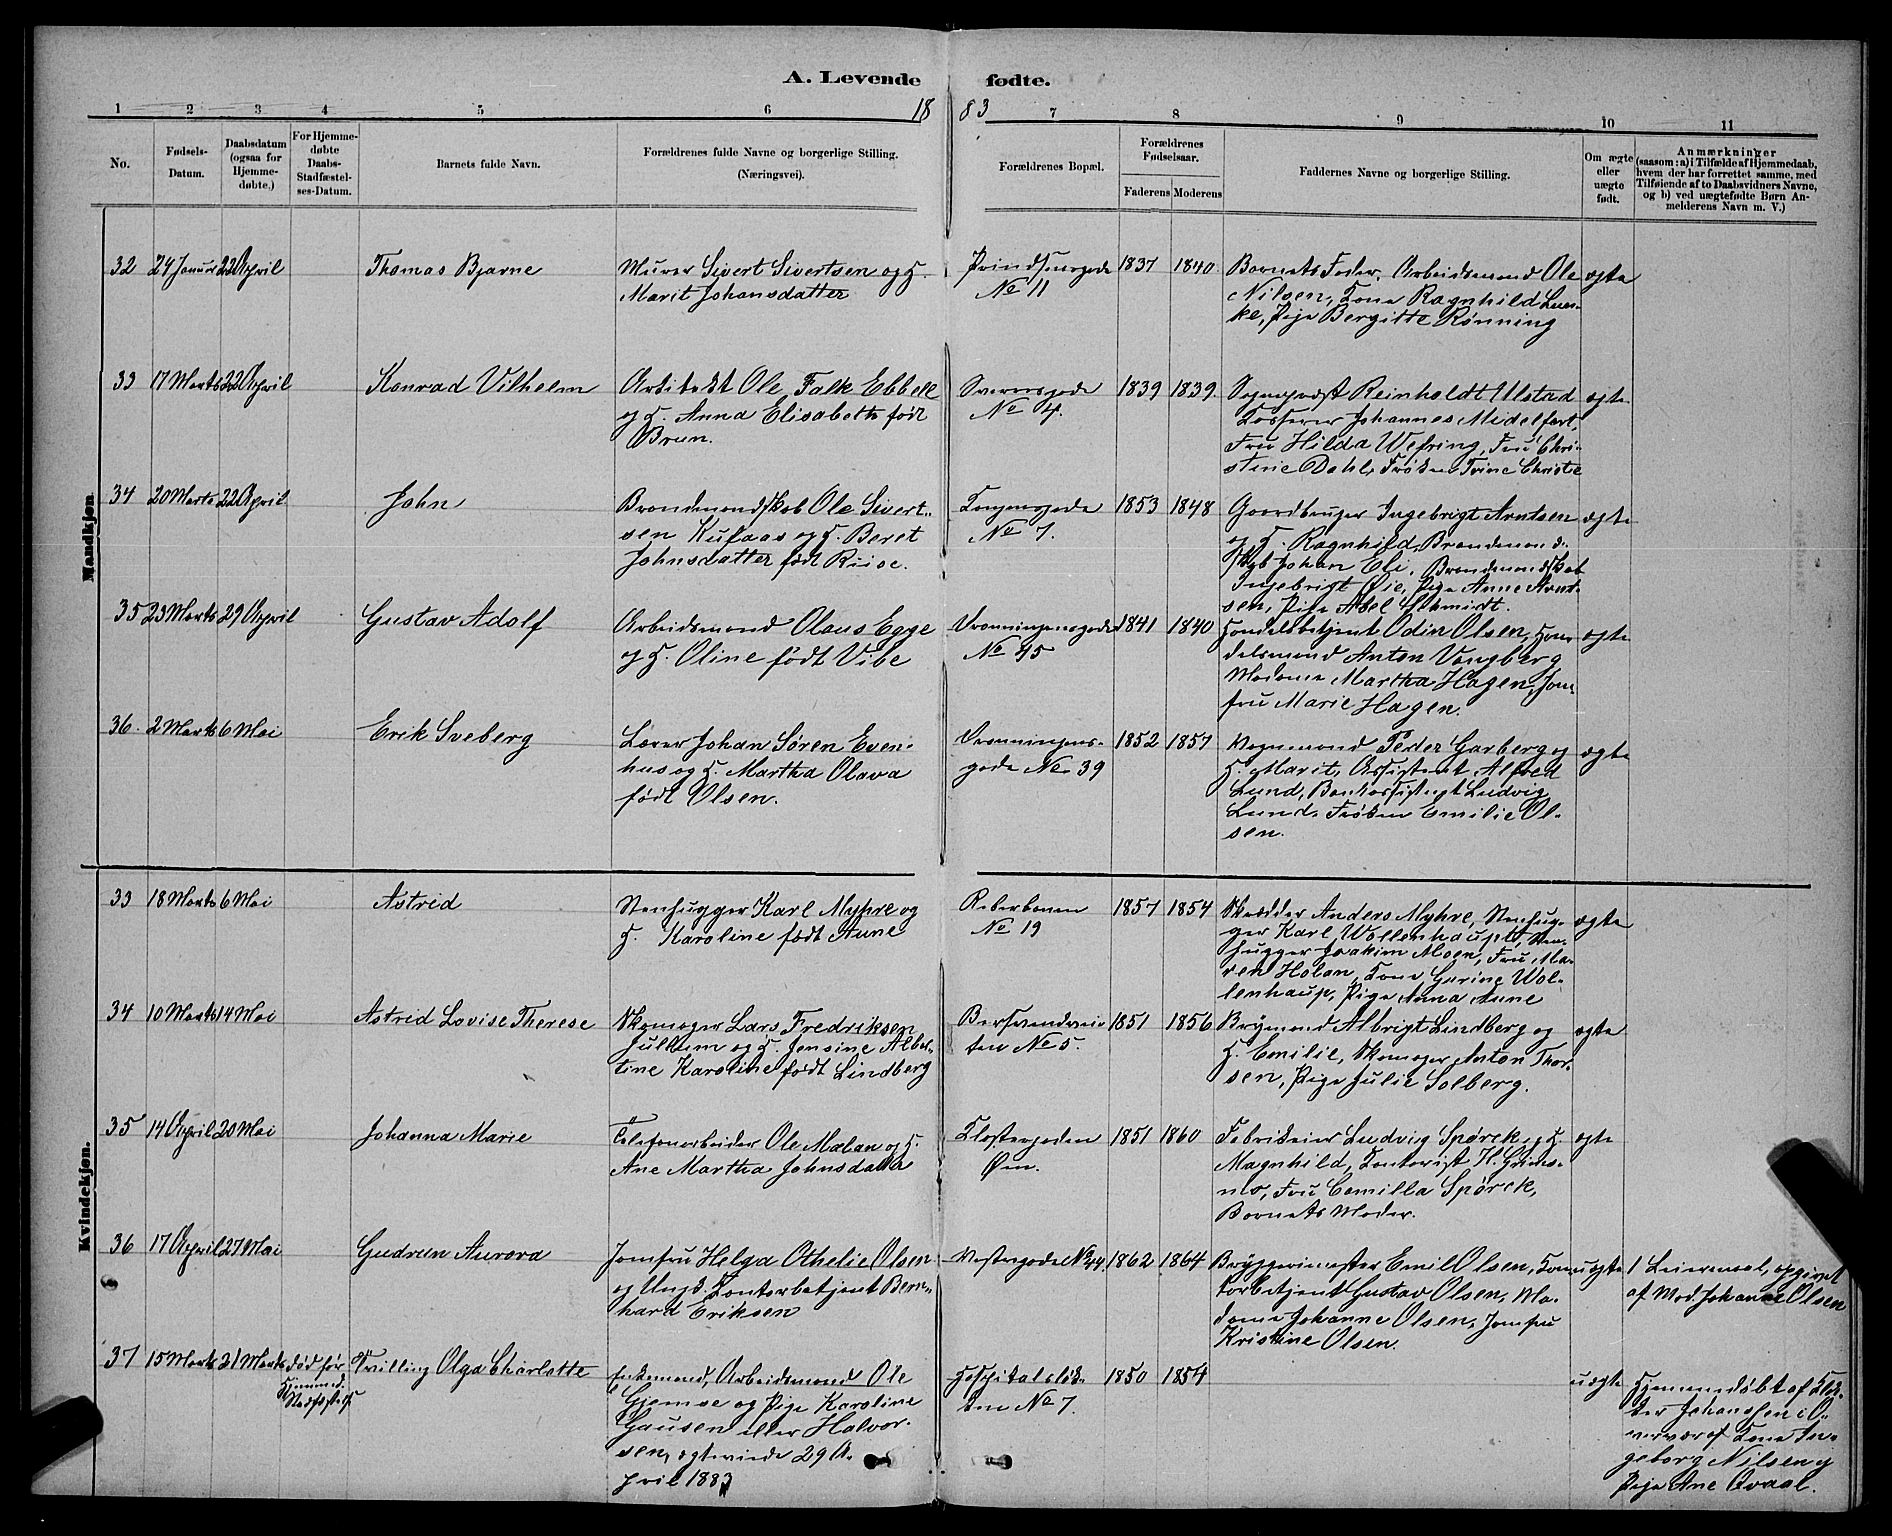 A. Levende fødte.
1 2 3 4 5 6 18 83 7 8 9 10 11
No.
Fødsels-
Datum.
Daabsdatum
(ogsaa for
Hjemme-
døbte.)
For Hjemme-
døbte
Daabs-
Stadfæstel-
ses-Datum.
Barnets fulde Navn.
Forældrenes fulde Navne og borgerlige Stilling.
(Næringsvei).
Forældrenes Bopæl.
Forældrenes
Fødselsaar.
Faderens Moderens
Faddernes Navne og borgerlige Stilling.
Om ægte
eller
uægte
født.
Anmærkninger
(saasom: a) i Tilfælde af Hjemmedaab,
hvem der har forrettet samme, med
Tilføiende af to Daabsvidners Navne,
og b) ved uægtefødte Børn An-
melderens Navn m. V.)
Mandkjøn.
32 24 Januar 22 April
Thomas Bjarne
Murer Sivert Sivertsen og H.
Marit Johansdatter
Prindsensgade
No 11
1837 1840
Barnets Fader, Arbeidsmand Ole
Nilsen, Kone Ragnhild Luns-
ke, Pige Bergitte Rønning
ægte
33 17 Marts 22 April
Konrad Vilhelm
Arkitekt Ole Falk Ebbell
og H. Anna Elisabeth født
Brun.
Sverresgade
No 4.
1839 1839
Sogneprest Reinholdt Ulstad
Kasserer Johannes Midelfart,
Fru Hilda Wefring, Fru Chri-
stine Dahl, Frøken Trine Christie
ægte
34 20 Marts 22 April
John
Brandmandskab Ole Sivert-
sen Kufaas og H. Beret
Johnsdatter født Riise.
Kongensgade
No 7.
1853 1848
Gaardbruger Ingebrigt Arntsen
og H. Ragnhild, Brandmand-
skab Johan Eli, Brandmandskab
Ingebrigt Øie, Pige Anne Arnt-
sen, Pige Abel Schmidt.
ægte
35 23 Marts 29 April
Gustav Adolf
Arbeidsmand Olaus Egge
og H. Oline født Vibe
Dronningensgade
No 45
1841 1840
Handelsbetjent Odin Olsen, Han-
delsmand Anton Vangberg
Madame Martha Hagen, Jom-
fru Marie Hagen.
ægte
36. 2 Marts 6 Mai
Erik Sveberg
Lærer Johan Søren Even-
hus og H. Martha Olava
født Olsen.
Dronningens-
gade No 39
1852 1857
Vognmand Peder Garberg og
H. Marit, Assistent Alfred
Lund, Bankassistent Ludvig
Lund, Frøken Emilie Ol-
sen.
ægte
Kvindekjøn.
33 18 Marts 6 Mai
Astrid
Stenhugger Karl Myhre og
H. Karoline født Aune
Reberbanen
No 19
1857 1854
Skrædder Anders Myhre, Stenhug-
ger Karl Wollenhaupt, Sten-
hugger Joakim Moen, Fru Ma-
ren Holan, Kone Gurine Wol-
lenhaup, Pige Anna Aune
ægte
34 10 Marts 14 Mai
Astrid Lovise Therese
Skomager Lars Fredriksen
Julhem og H. Jensine Alber-
tine Karoline født Lindberg
Bersvendvei-
ten No 5.
1851 1856
Brymand Albrigt Lindberg og
H. Emilie, Skomager Anton Thor-
sen, Pige Julie Solberg.
ægte
35 14 April 20 Mai
Johanna Marie
Telefonarbeider Ole Mælan og H.
Ane Martha Johnsdatter
Klostergaden
Øen.
1851 1860
Fabrikeier Ludvig Spørck og H.
Magnhild, Kontorist H. Grims-
mo, Fru Camilla Spørck,
Barnets Moder.
ægte
36 17 April 27 Mai
Gudrun Aurora
Jomfru Helga Othelie Olsen
og Ungk. Kontorbetjent Bern-
hard Eriksen
Vestregade No 44.
1862 1864
Bryggerimester Emil Olsen, Kon-
torbetjent Gustav Olsen, Ma-
dame Johanne Olsen, Jomfru
Kristine Olsen.
uægte
1 Leiermaal, opgivet
af Mad. Johanne Olsen
37 15 Marts 21 Marts død før
Himmed.
Stadfæstelse
Tvilling Olga Charlotte
Enkemand, Arbeidsmand Ole
Gjemse og Pige Karoline
Gausen eller Halvor-
sen, ægteviede 29 A-
pril 1883
Hospitalsløk-
ken No 7.
1850 1854
uægte
Hjemmedøbt af Klok-
ker Johanssen i O-
verværet Kone In-
geborg Nilsen og
Pige Ane Qvaal.